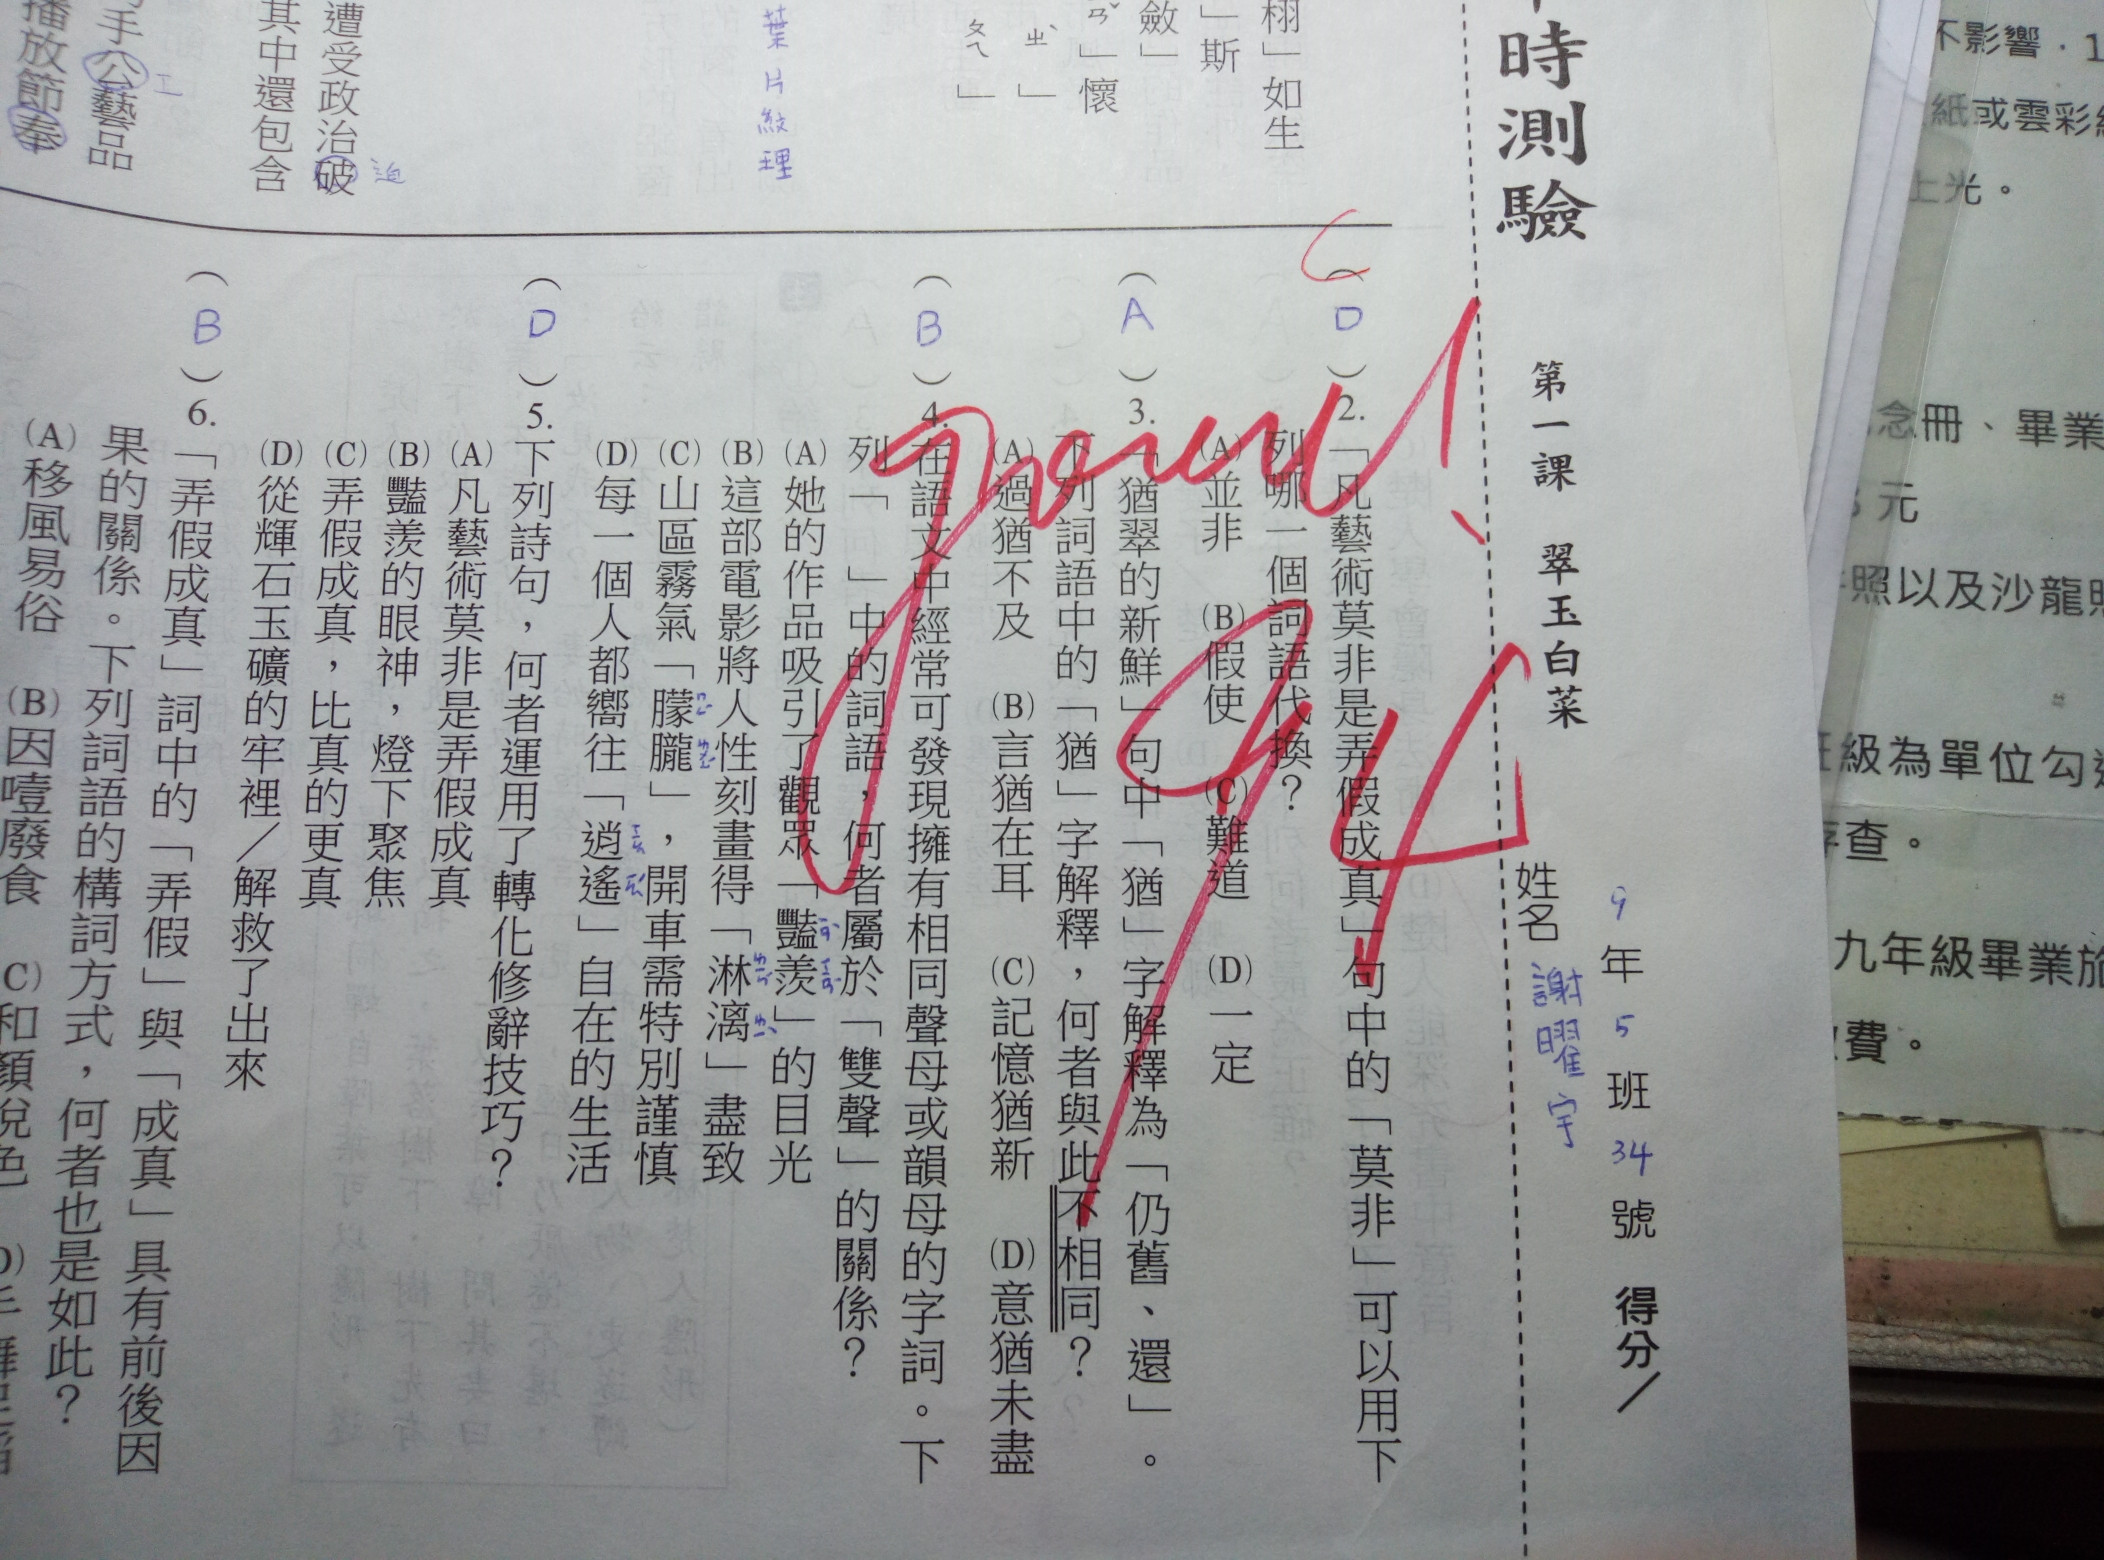 時測驗
第一課 翠玉白菜
9年5班34號 得分/
姓名 謝曜宇
good!
94
栩」如生
」斯
斂」
ㄢˇ」懷
ㄓˋ」
ㄆㄟ」
葉片紋理
遭受政治破
迫
其中還包含
手公藝品
工
播放節奉
C
(D)2.「凡藝術莫非是弄假成真」句中的「莫非」可以用下
列哪一個詞語代換?
(A)並非 (B)假使 (C)難道 (D)一定
(A)3.「猶翠的新鮮」句中「猶」字解釋為「仍舊、還」。
下列詞語中的「猶」字解釋,何者與此不相同?
(A)過猶不及 (B)言猶在耳 (C)記憶猶新 (D)意猶未盡
(B)4.在語文中經常可發現擁有相同聲母或韻母的字詞。下
列「 」中的詞語,何者屬於「雙聲」的關係?
(A)她的作品吸引了觀眾「豔羨」的目光
(B)這部電影將人性刻畫得「淋漓」盡致
(C)山區霧氣「朦朧」,開車需特別謹慎
(D)每一個人都嚮往「逍遙」自在的生活
(D)5.下列詩句,何者運用了轉化修辭技巧?
(A)凡藝術莫非是弄假成真
(B)豔羨的眼神,燈下聚焦
(C)弄假成真,比真的更真
(D)從輝石玉礦的牢裡/解救了出來
(B)6.「弄假成真」詞中的「弄假」與「成真」具有前後因
果的關係。下列詞語的構詞方式,何者也是如此?
(A)移風易俗 (B)因噎廢食 (C)和顏悅色
不影響.1
紙或雲彩
上光。
念冊、畢業
元
照以及沙龍
級為單位勾
存查。
九年級畢業旅
費。